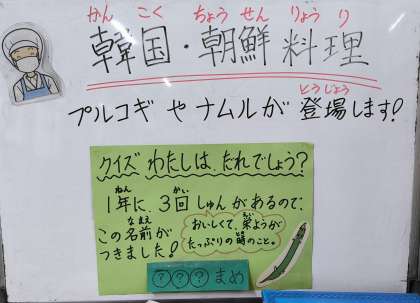 かんこく ちょうせんりょうり
韓国・朝鮮料理
とうじょう
プルコギやナムルが登場します!
クイズ わたしは、だれでしょう?
ねん かい
1年に、3回しゅんがあるので、
なまえ
この名前が
つきました!
えい
おいしくて、栄ようが
とき
たっぷりの時のこと。
???まめ